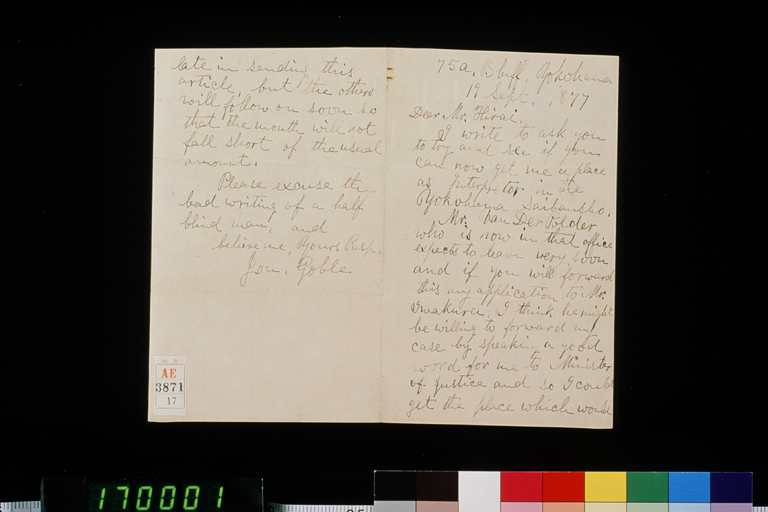 75a, Bluff, Yokohama
19 Sept. 1877
Dear Mr. Hirai,
I write to ask you
to try and see if you
can now get me a place
as Interpreter in the
Yokohama Saibansho.
Mr. Van Der Polder
who is now in that office
expects to leave very soon
and if you will forward
this my application to Mr.
Iwakura, I think he might
be willing to forward my
case by speaking a good
word for me to Minister
of Justice and so I could
get the place which would
late in sending this
article, but the others
will follow on soon so
that the month will not
fall short of the usual
amount.
Please excuse the
bad writing of a half
blind man, and
believe me, Yours Resp.
Jon. Goble
AE
3871
17
170001